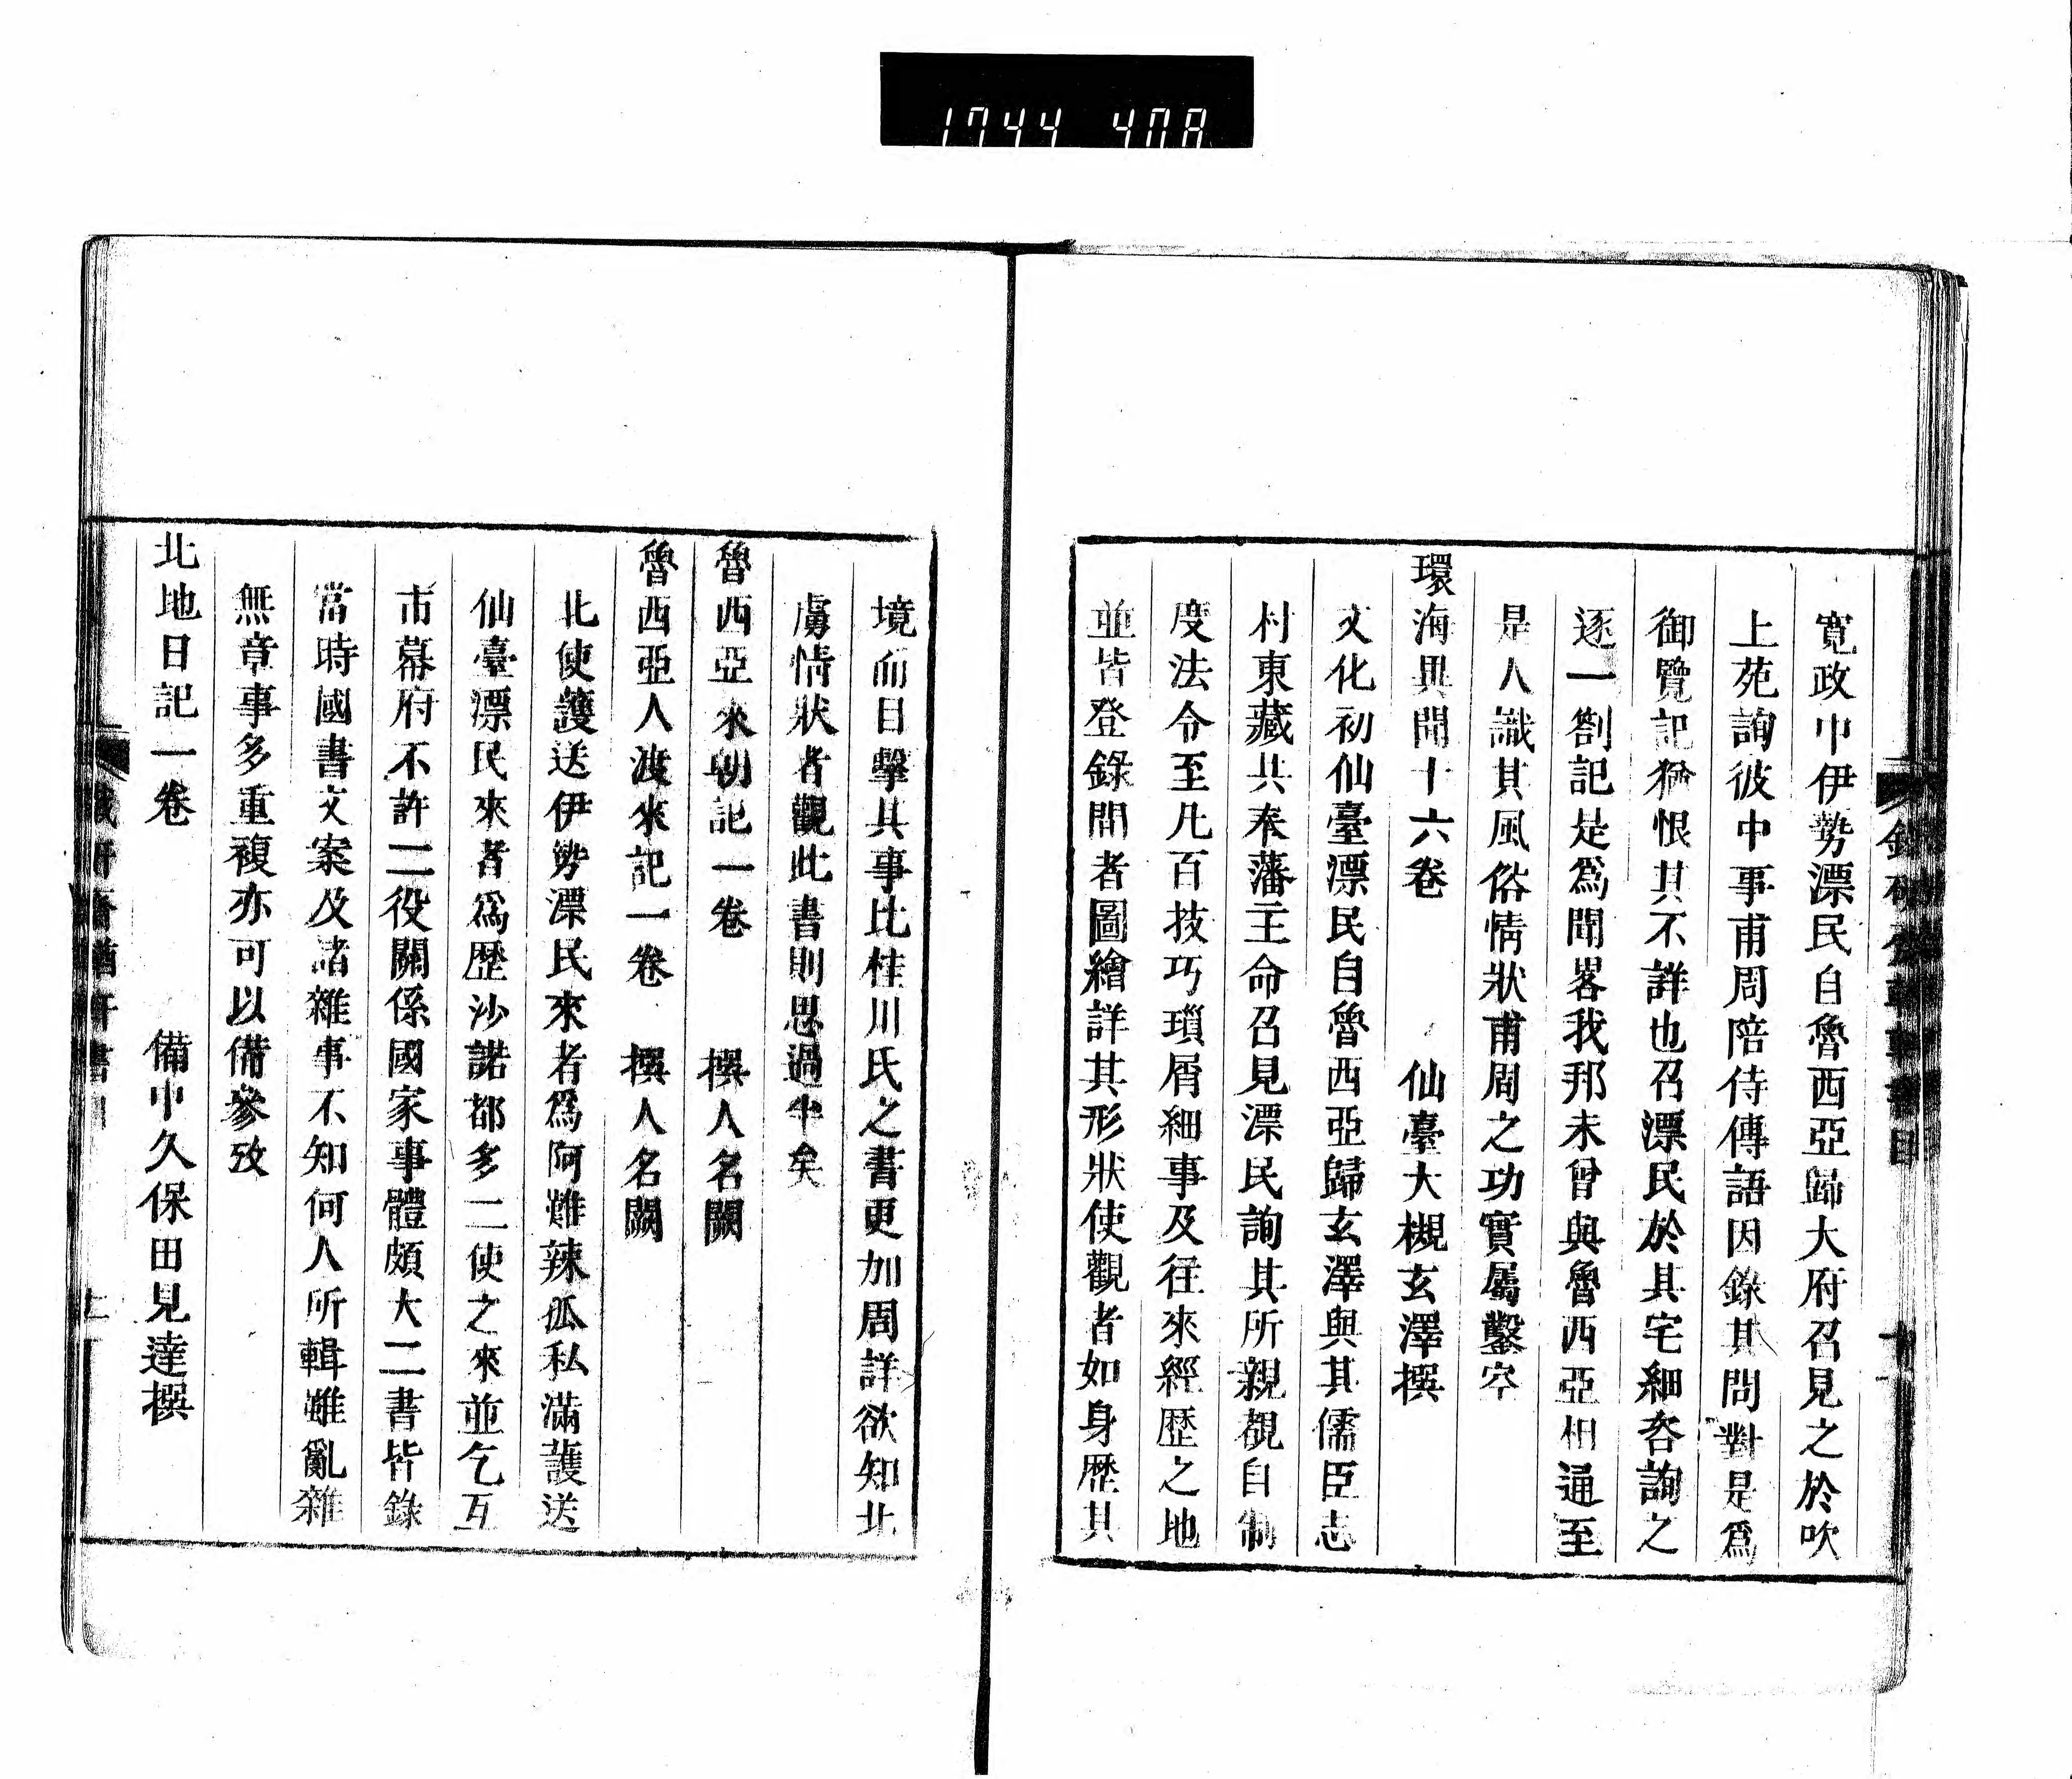 1744 408
寛政中伊勢漂民自魯西亞歸大府召見之於吹
上苑詢彼中事甫周陪侍傳語因錄其問對是爲
御覽記猶恨其不詳也召漂民於其宅細咨詢之
逐一劄記是爲聞畧我邦未曾與魯西亞相通至
是人識其風俗情狀甫周之功實屬鑿空
環海異聞十六卷　仙臺大槻玄澤撰
文化初仙臺漂民自魯西亞歸玄澤與其儒臣志
村東藏共奉藩主命召見漂民詢其所親覩自制
度法令至凡百技巧瑣屑細事及往來經歷之地
並皆登錄間者圖繪詳其形狀使觀者如身歷其
境而目擊其事比桂川氏之書更加周詳欲知北
虜情狀者觀此書則思過半矣
魯西亞來朝記一卷　撰人名闕
魯西亞人渡來記一卷　撰人名闕
北使護送伊勢漂民來者爲阿難辣瓜私滿護送
仙臺漂民來者爲歷沙諾都多二使之來並乞互
市幕府不許二役關係國家事體頗大二書皆錄
當時國書文案及諸雜事不知何人所輯雖亂雜
無章事多重複亦可以備參攷
北地日記一卷　備中久保田見達撰